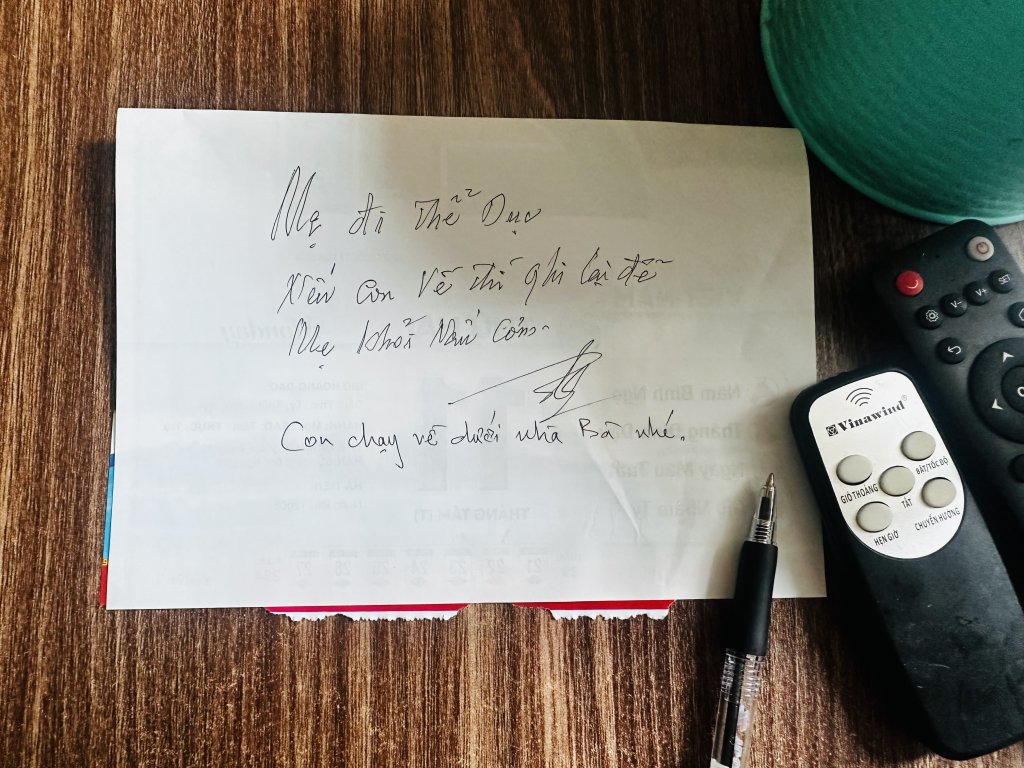 Mẹ đi Thể Dục
Nếu con Về thì ghi lại để
Mẹ khỏi Nấu Cơm.
Con chạy về dưới nhà Bà nhé.
V-
V+
SET
Vinawind®
BẬT/TỐC ĐỘ
GIÓ THOẢNG
TẮT
CHUYỂN HƯỚNG
HẸN GIỜ